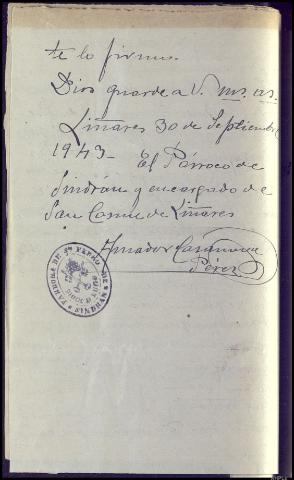 te lo firmo.
Dios guarde a V. ms. as.
Liñares 30 de Septiembre
1943 - El Párroco de
Sindrán y encargado de
San Cosme de Liñares
Amador Casanova
Pérez
PARROQUIA DE Sn PEDRO DE SINDRAN